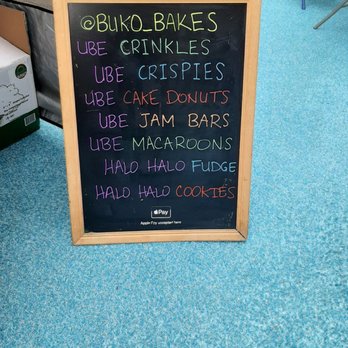 @BUKO_BAKES
UBE CRINKLES
UBE CRISPIES
UBE CAKE DONUTS
UBE JAM BARS
UBE MACAROONS
HALO HALO FUDGE
HALO HALO COOKIES
Pay
Apple Pay accepted here